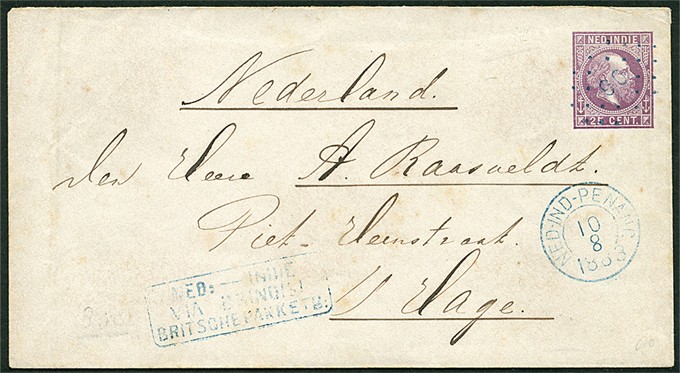 NED. INDIE
25 CENT.
Nederland.
Den Heer A. Raasveldt.
Piet-Heinstraat.
'S Hage.
NED-IND-PENANG
10
8
188
NED: INDIE
VIA BRINDISI
BRITSCHE PAKKETB.